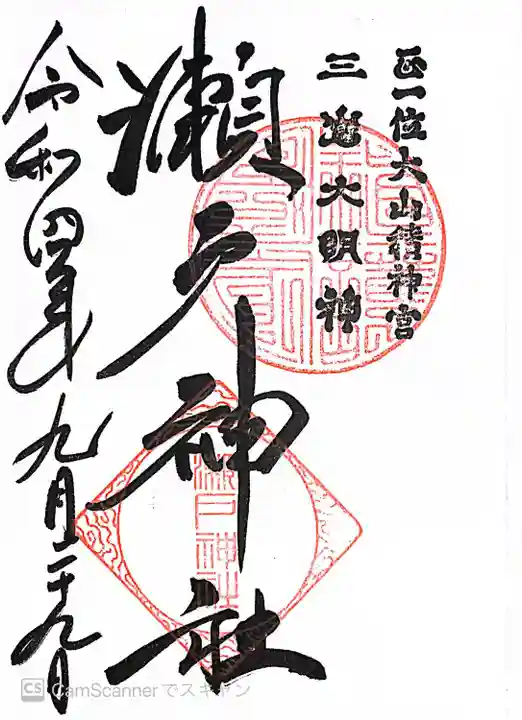 正一位大山積神宮
三嶌大明神
瀬戸神社
瀬戸神社
令和四年九月二十九日
CS CamScannerでスキャン